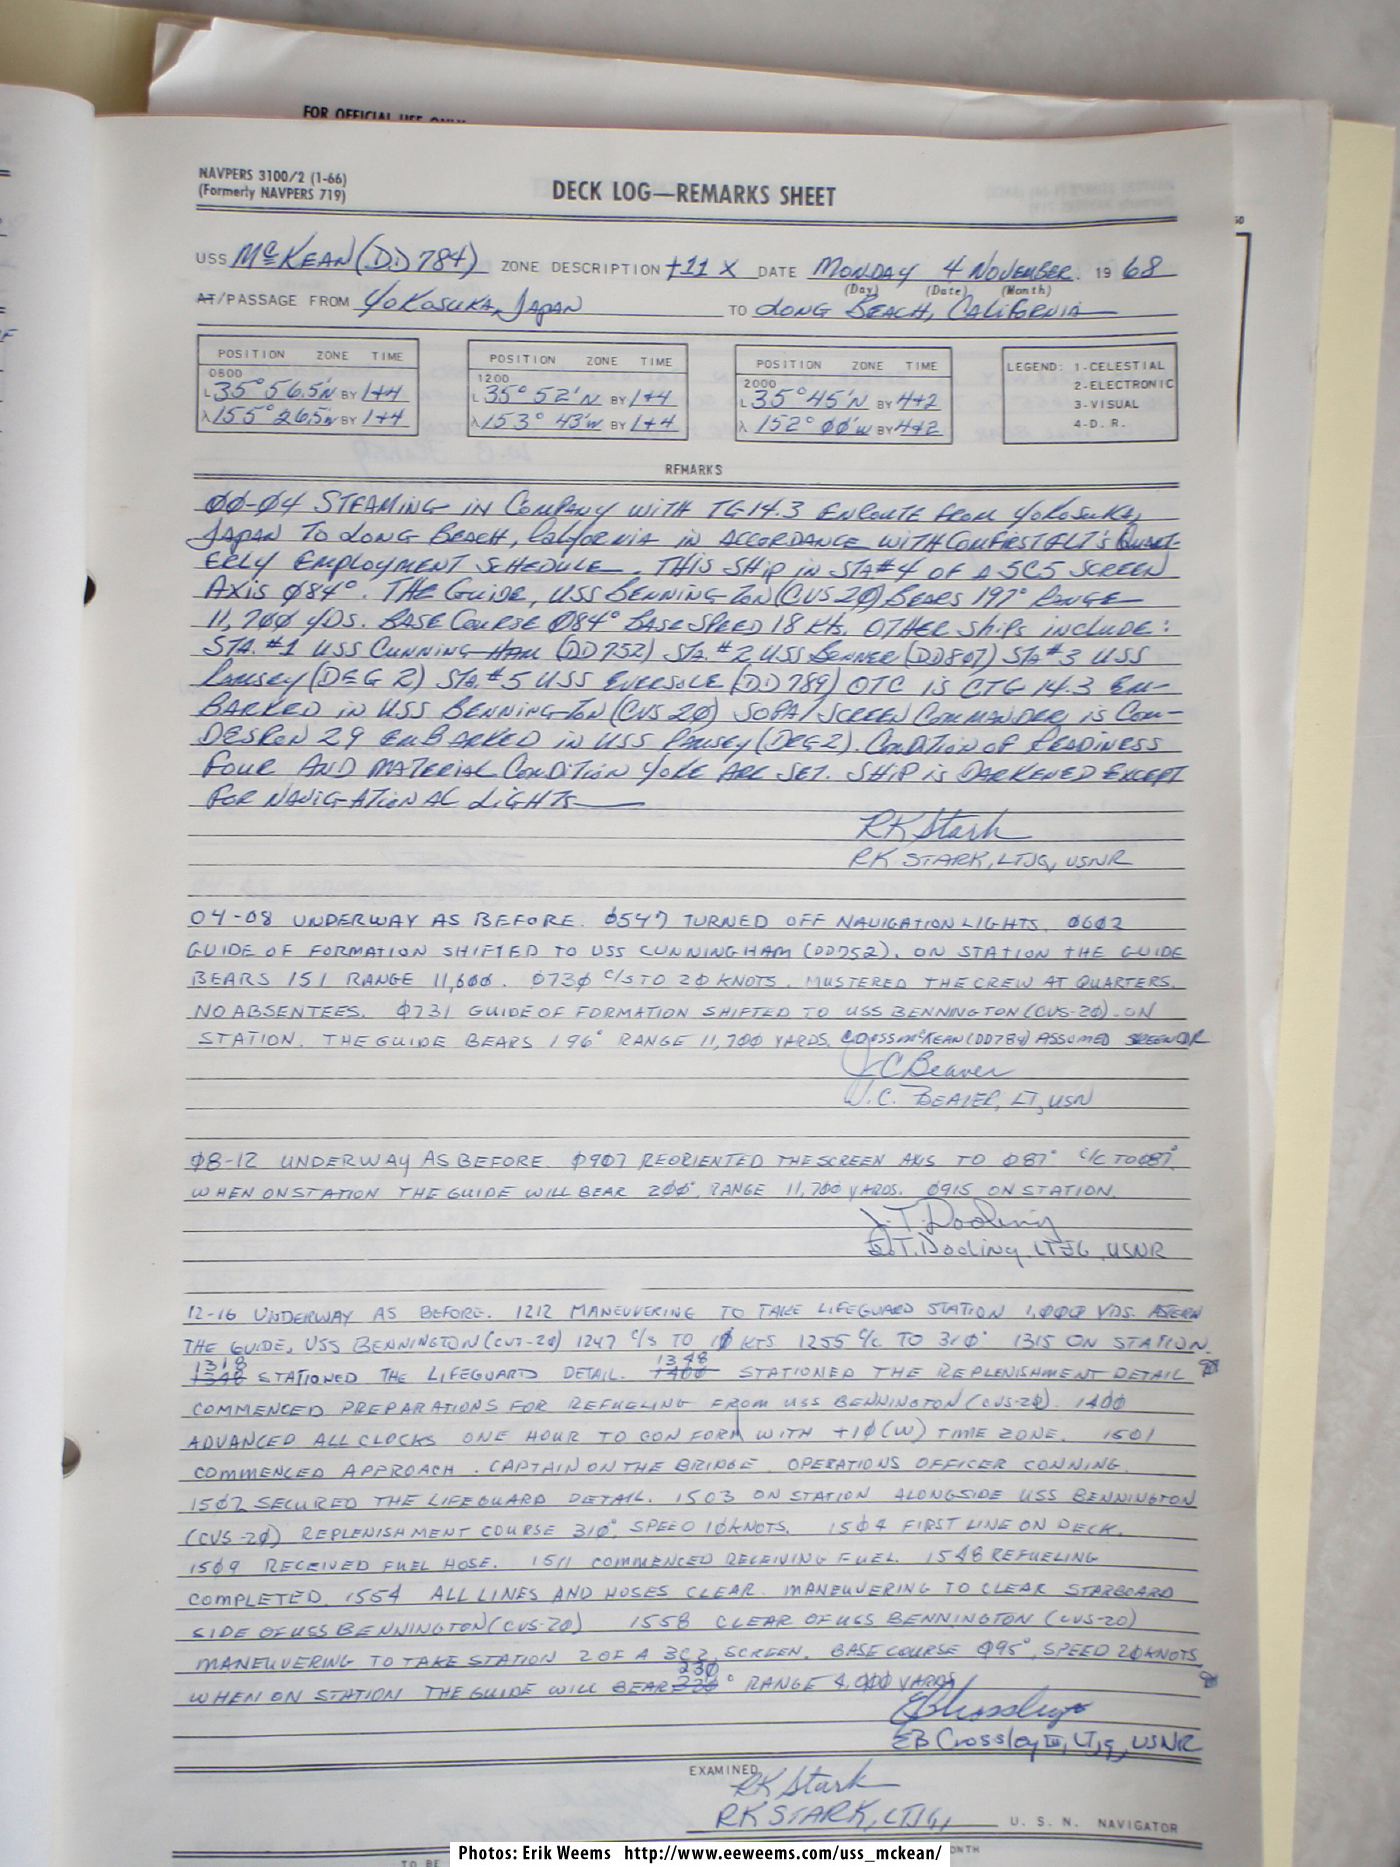 FOR OFFICIAL USE ONLY
NAVPERS 3100/2 (1-66)
(Formerly NAVPERS 719)
DECK LOG—REMARKS SHEET
USS McKEAN (DD 784) ZONE DESCRIPTION +11 X DATE MONDAY 4 NOVEMBER 19 68
(Day) (Date) (Month)
AT/PASSAGE FROM YOKOSUKA, JAPAN TO LONG BEACH, CALIFORNIA
POSITION ZONE TIME
0800
L 35° 56.5'N BY 1+4
λ 155° 26.5'W BY 1+4
POSITION ZONE TIME
1200
L 35° 52'N BY 1+4
λ 153° 43'W BY 1+4
POSITION ZONE TIME
2000
L 35° 45'N BY 4+2
λ 152° 00'W BY 4+2
LEGEND: 1-CELESTIAL
2-ELECTRONIC
3-VISUAL
4-D. R.
REMARKS
00-04 STEAMING IN COMPANY WITH TG 14.3 ENROUTE FROM YOKOSUKA,
JAPAN TO LONG BEACH, CALIFORNIA IN ACCORDANCE WITH COMFIRSTFLT'S QUART-
ERLY EMPLOYMENT SCHEDULE. THIS SHIP IN STA #4 OF A 5C5 SCREEN
AXIS 084°. THE GUIDE, USS BENNINGTON (CVS 20) BEARS 197° RANGE
11,700 YDS. BASE COURSE 084° BASE SPEED 18 KTS. OTHER SHIPS INCLUDE:
STA. #1 USS CUNNINGHAM (DD 752) STA. #2 USS BENNER (DD807) STA #3 USS
RAMSEY (DEG 2) STA. #5 USS EVERSOLE (DD 789) OTC IS CTG 14.3 EM-
BARKED IN USS BENNINGTON (CVS 20) SOPA/SCREEN COMMANDER IS COM-
DESRON 29 EMBARKED IN USS RAMSEY (DEG 2). CONDITION OF READINESS
FOUR AND MATERIAL CONDITION YOKE ARE SET. SHIP IS DARKENED EXCEPT
FOR NAVIGATIONAL LIGHTS
RK Stark
RK STARK, LTJG, USNR
04-08 UNDERWAY AS BEFORE. 0547 TURNED OFF NAVIGATION LIGHTS. 0602
GUIDE OF FORMATION SHIFTED TO USS CUNNINGHAM (DD752). ON STATION THE GUIDE
BEARS 151 RANGE 11,600. 0730 C/S TO 20 KNOTS. MUSTERED THE CREW AT QUARTERS.
NO ABSENTEES. 0731 GUIDE OF FORMATION SHIFTED TO USS BENNINGTON (CVS-20). ON
STATION. THE GUIDE BEARS 196° RANGE 11,700 YARDS. CO USS McKEAN (DD784) ASSUMED SCREENCDR
J.C Beaver
J.C. BEAVER, LT, USN
08-12 UNDERWAY AS BEFORE 0907 REORIENTED THE SCREEN AXIS TO 087° C/C TO 087°.
WHEN ON STATION THE GUIDE WILL BEAR 200°, RANGE 11,700 YARDS. 0915 ON STATION.
J.T. Dooling
J.T. Dooling, LTJG, USNR
12-16 UNDERWAY AS BEFORE. 1212 MANEUVERING TO TAKE LIFEGUARD STATION 1,000 YDS. ASTERN
THE GUIDE, USS BENNINGTON (CVS-20) 1247 C/S TO 10 KTS 1255 C/C TO 310° 1315 ON STATION.
1318 1348
1348 STATIONED THE LIFEGUARD DETAIL. 1400 STATIONED THE REPLENISHMENT DETAIL
COMMENCED PREPARATIONS FOR REFUELING FROM USS BENNINGTON (CVS-20). 1400
ADVANCED ALL CLOCKS ONE HOUR TO CONFORM WITH +10 (W) TIME ZONE. 1501
COMMENCED APPROACH. CAPTAIN ON THE BRIDGE. OPERATIONS OFFICER CONNING.
1502 SECURED THE LIFEGUARD DETAIL. 1503 ON STATION ALONGSIDE USS BENNINGTON
(CVS-20) REPLENISHMENT COURSE 310°, SPEED 10 KNOTS. 1504 FIRST LINE ON DECK.
1509 RECEIVED FUEL HOSE. 1511 COMMENCED RECEIVING FUEL. 1548 REFUELING
COMPLETED. 1554 ALL LINES AND HOSES CLEAR. MANEUVERING TO CLEAR STARBOARD
SIDE OF USS BENNINGTON (CVS-20) 1558 CLEAR OF USS BENNINGTON (CVS-20)
MANEUVERING TO TAKE STATION 2 OF A 3C2 SCREEN. BASE COURSE 095°, SPEED 20 KNOTS.
230
WHEN ON STATION THE GUIDE WILL BEAR 330° RANGE 4,000 YARDS
EB Crossley
EB Crossley III, LTjg, USNR
EXAMINED
RK Stark
RK STARK, LTJG, U. S. N. NAVIGATOR
TO BE
MONTH
Photos: Erik Weems http://www.eeweems.com/uss_mckean/